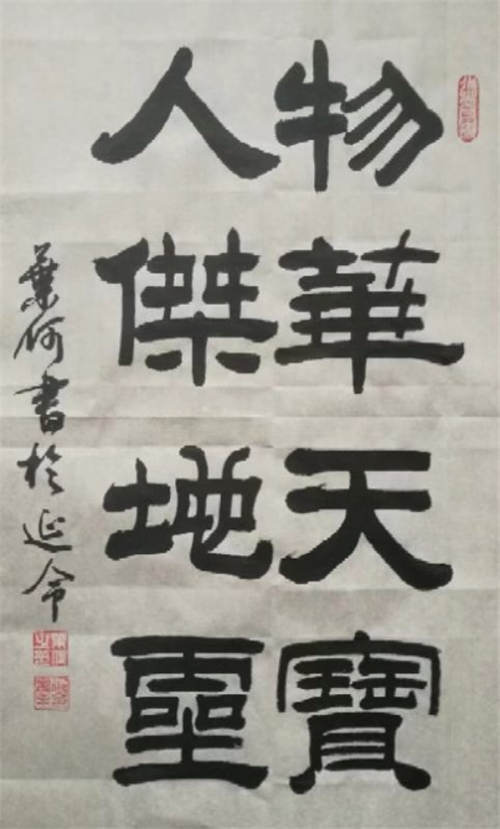 物華天寶
人傑地靈
葉何書於延令